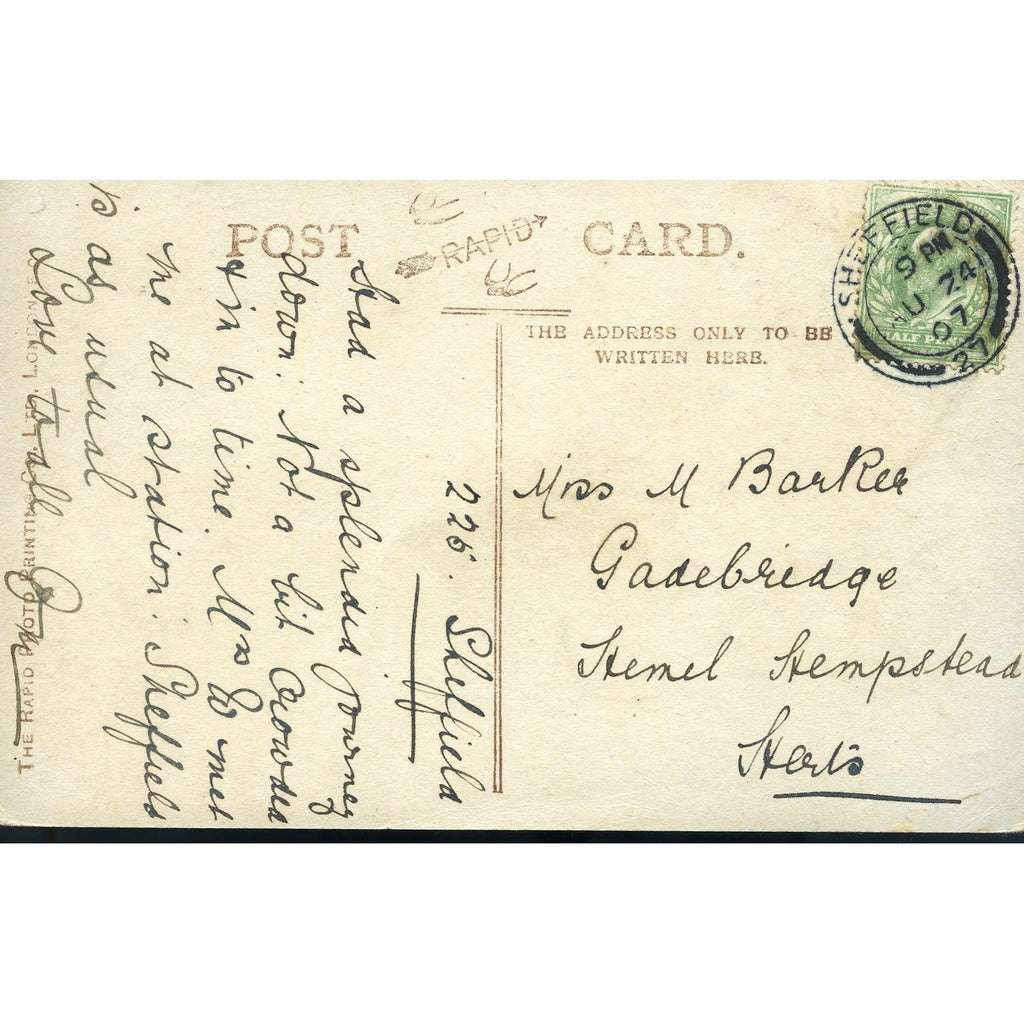 POST CARD.
RAPID
THE ADDRESS ONLY TO BE
WRITTEN HERE.
SHEFFIELD
9 PM
AU 24
07
27
HALF PENNY
Miss M Barker
Gadebridge
Hemel Hempstead
Herts
225. Sheffield
Had a splendid journey
down. Not a bit crowded
& in to time. Mrs W met
me at station. Sheffield
is as usual
Love to all
THE RAPID PHOTO PRINTING CO. LTD. LONDON